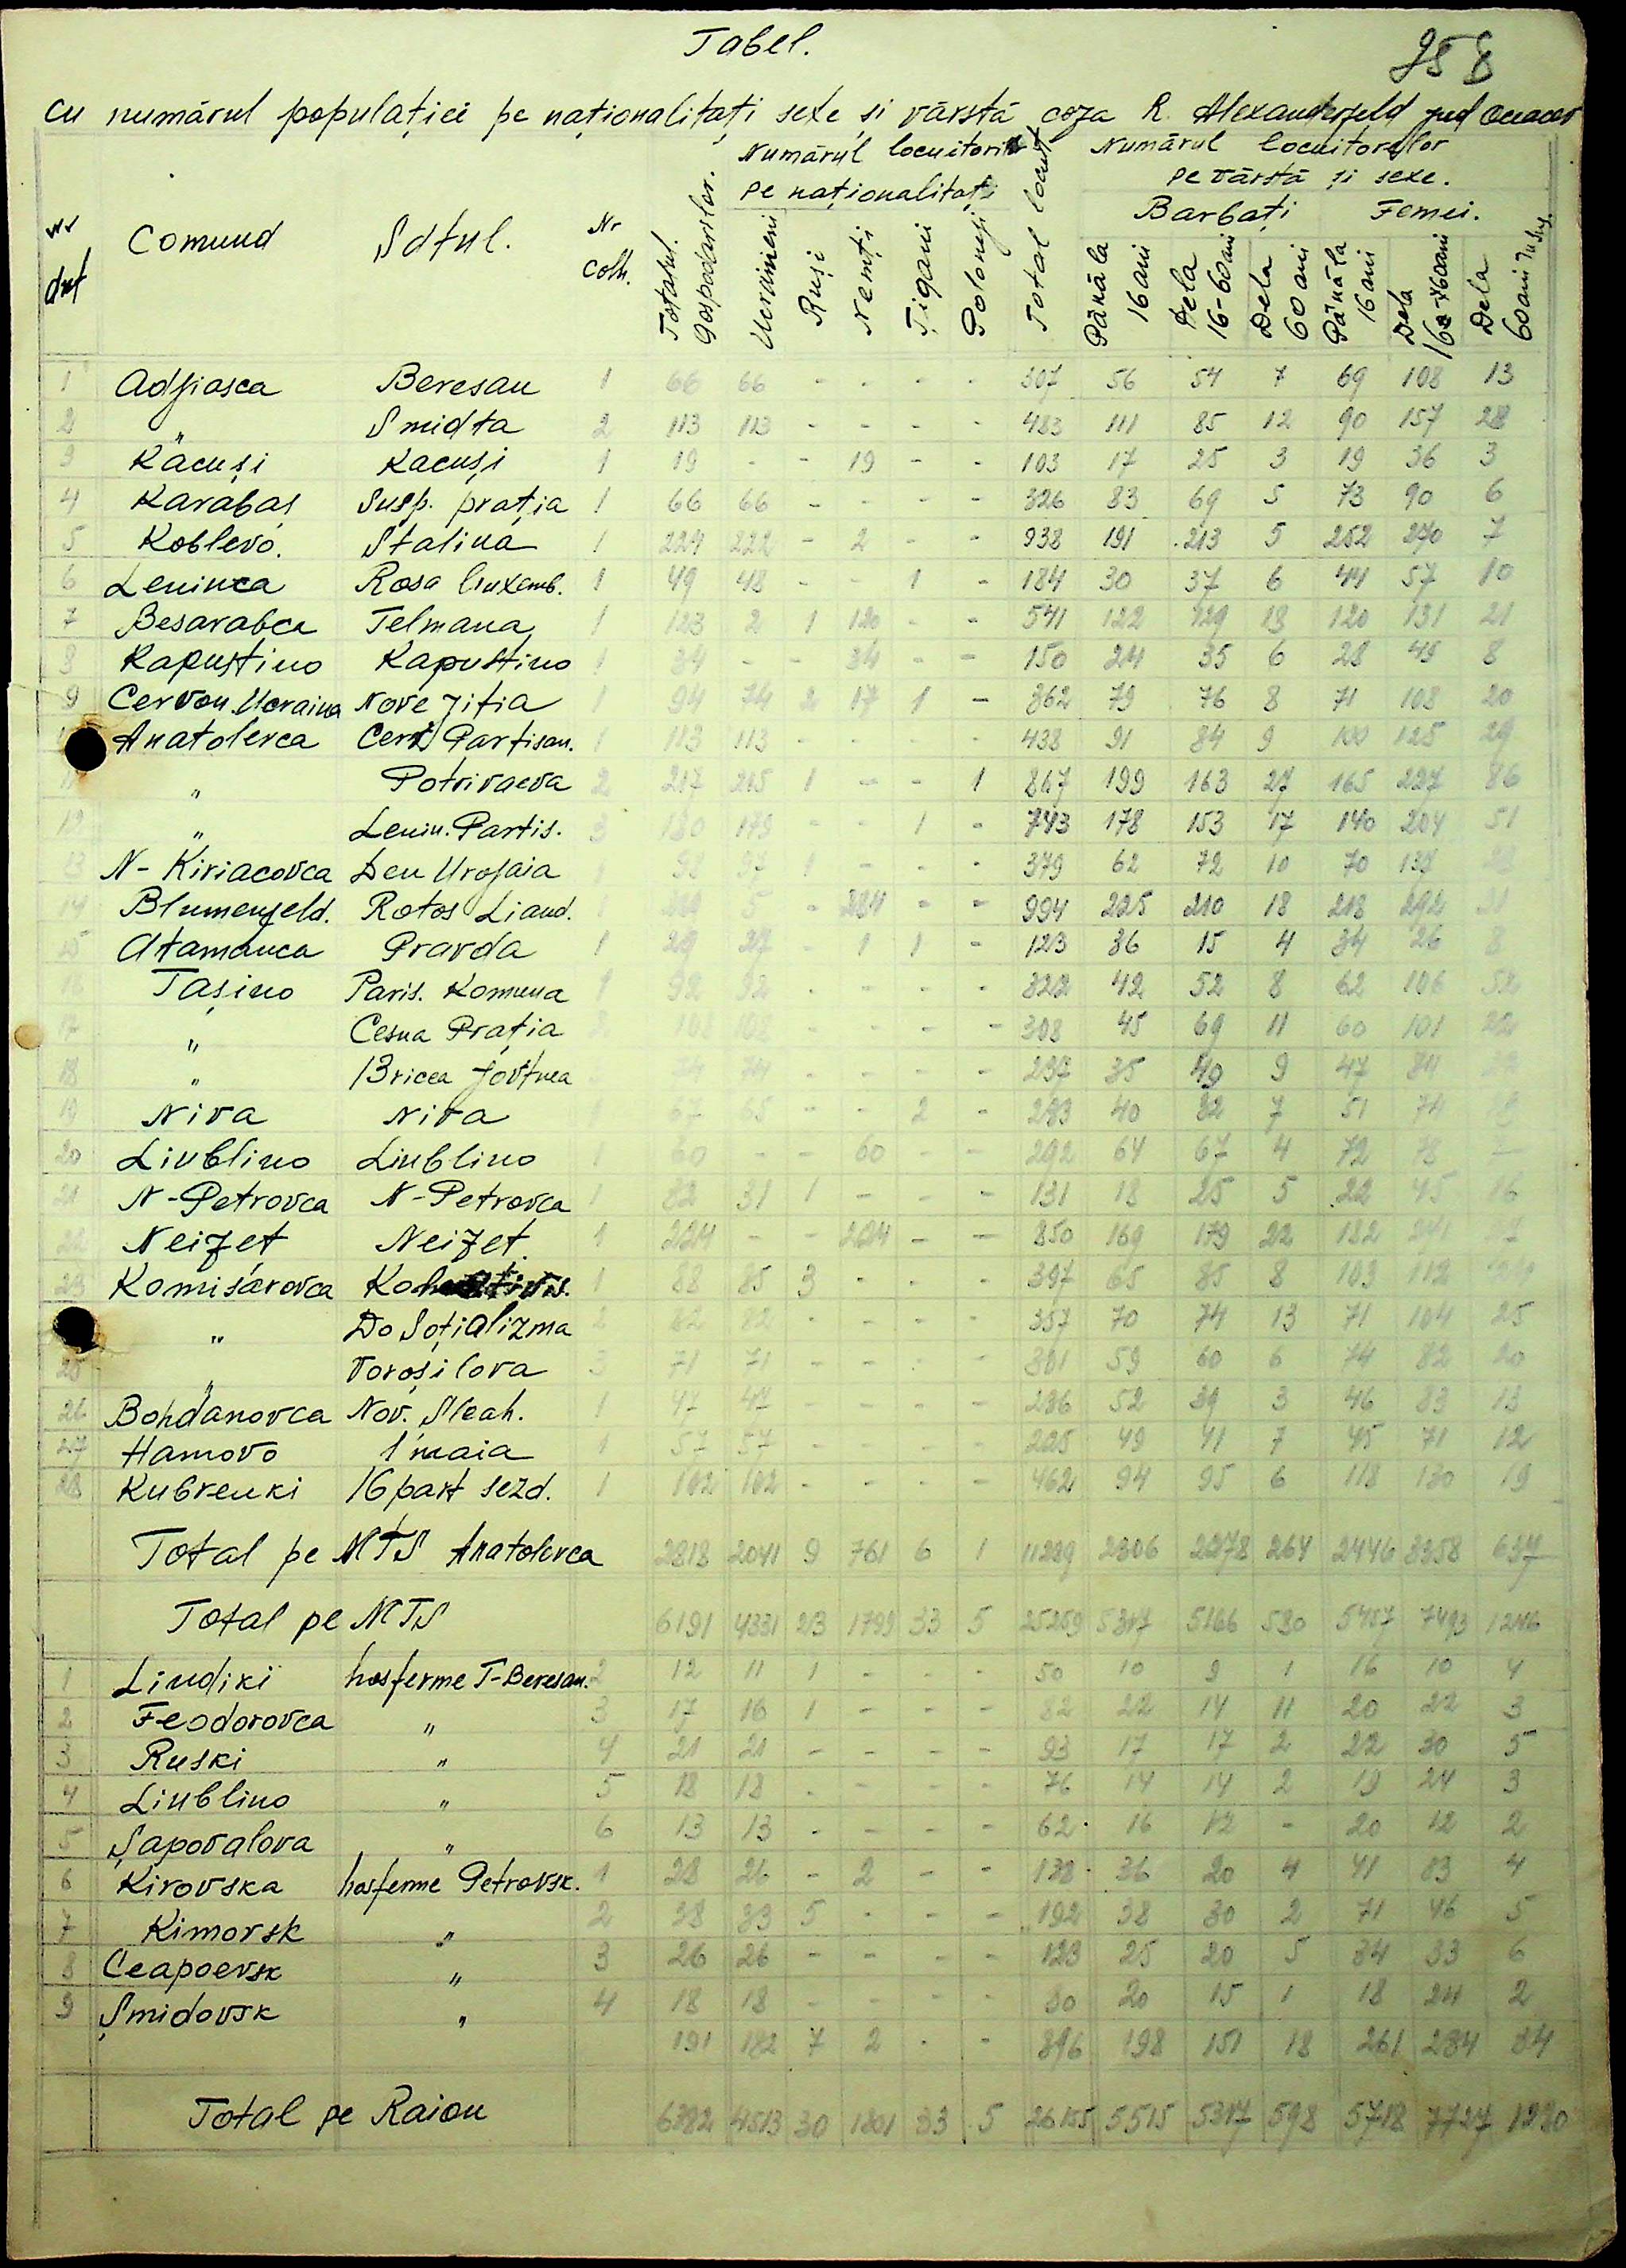 Tabel.
258
cu numărul populației pe naționalitați sexe și vârstă coza R. Alexanderfeld jud Oceacov
Nr crt
Comuna
Satul.
Nr Colh.
Totalul. Gospodariilor.
Numărul locuitorilor pe naționalitați
Ucrainieni
Ruși
Nemți
Țigani
Poloneji
Total locuit
Numărul locuitorilor pe vârstă și sexe.
Barbați
Femei.
Până la 16 ani
Dela 16-60 ani
Dela 60 ani
Până la 16 ani
Dela 16-60 ani
Dela 60 ani in sus.
1 Adjiasca Beresan 1 66 66 - - - - 307 56 54 7 69 108 13
2 " Smidta 2 113 113 - - - - 483 111 85 12 90 157 28
3 Kacuși Kacuși 1 19 - - 19 - - 103 17 25 3 19 36 3
4 Karabaș Susp. prația 1 66 66 - - - - 326 83 69 5 73 90 6
5 Koblevo. Stalina 1 224 222 - 2 - - 938 191 213 5 252 270 7
6 Leninca Rosa Luxemb. 1 49 48 - - 1 - 184 30 37 6 44 57 10
7 Besarabca Telmana 1 123 2 1 120 - - 541 122 129 18 120 131 21
8 Kapustino Kapustino 1 34 - - 34 - - 150 24 35 6 28 49 8
9 Cervon. Ucraina Nove jitia 1 94 74 2 17 1 - 362 79 76 8 71 108 20
Anatolevca Cerv Partisan. 1 113 113 - - - - 438 91 84 9 100 125 29
11 " Potrivaeva 2 217 215 1 - - 1 867 199 163 27 165 227 86
12 " Lenin. Partis. 3 180 179 - - 1 - 743 178 153 17 140 204 51
13 N-Kiriacovca Den Urojaia 1 - - - 379 62 72 10 70
14 Blumenfeld. Rotos Liand. 5 - 284 - - 994 225 210 18 218 292 31
15 Atamanca Pravda 1 29 27 - 1 1 - 123 36 15 4 34 26 8
16 Tașino Paris. Komuna 1 92 92 - - - - 322 42 52 8 62 106 52
17 " Cesna Prația 102 - - - - 308 45 69 11 60 101 22
18 " Bricea Jovtnea 74 74 - - - - 237 35 49 9 47
19 Niva Niva 1 67 65 - - 2 - 283 40 7 51 74
20 Liublino Liublino 1 60 - - 60 - - 292 64 67 4 72 78 7
21 N-Petrovca N-Petrovca 1 32 31 1 - - - 131 18 25 5 22 45 16
22 Neizet Neizet. 1 224 - - 224 - - 850 169 179 22 182 241
23 Komisarovca 1 88 85 3 - - - 397 65 85 8 103 112
" Do Soțializma 2 82 82 - - - - 357 70 74 13 71 104 25
25 " Voroșilova 3 71 71 - - - - 301 59 60 6 74 82 20
26 Bohdanovca Nov. Sleah. 1 47 47 - - - - 236 52 39 3 46 83 13
27 Hamovo 1 maia 1 57 57 - - - - 225 49 41 7 45 71 12
28 Kubrenki 16 part sezd. 1 102 102 - - - - 462 94 95 6 118 130 19
Total pe MTS Anatolevca 2818 2041 9 761 6 1 11289 2306 2278 264 2446 3358 637
Total pe MTS 6191 4331 23 1799 33 5 25259 5317 5166 580 5457 7493 1246
1 Lindiki hosferme T-Beresan. 2 12 11 1 - - - 50 10 9 1 16 10 4
2 Feodorovca " 3 17 16 1 - - - 82 22 14 11 20 22 3
3 Ruski " 4 21 21 - - - - 93 17 17 2 22 30 5
4 Liublino " 5 18 18 - - - - 76 14 14 2 19 24 3
5 Șapovalova " 6 13 13 - - - - 62 16 12 - 20 12 2
6 Kirovska hosferme Petrovsk. 1 28 26 - 2 - - 138 36 20 4 41 33 4
7 Kimorsk " 2 38 33 5 - - - 192 38 30 2 71 46 5
8 Ceapoevsk " 3 26 26 - - - - 123 25 20 5 34 33 6
9 Șmidovsk " 4 18 18 - - - - 80 20 15 1 18 24 2
191 182 7 2 - - 896 198 151 18 261 234 34
Total pe Raion 6382 4513 30 1801 33 5 26155 5515 5317 598 5718 7727 1280